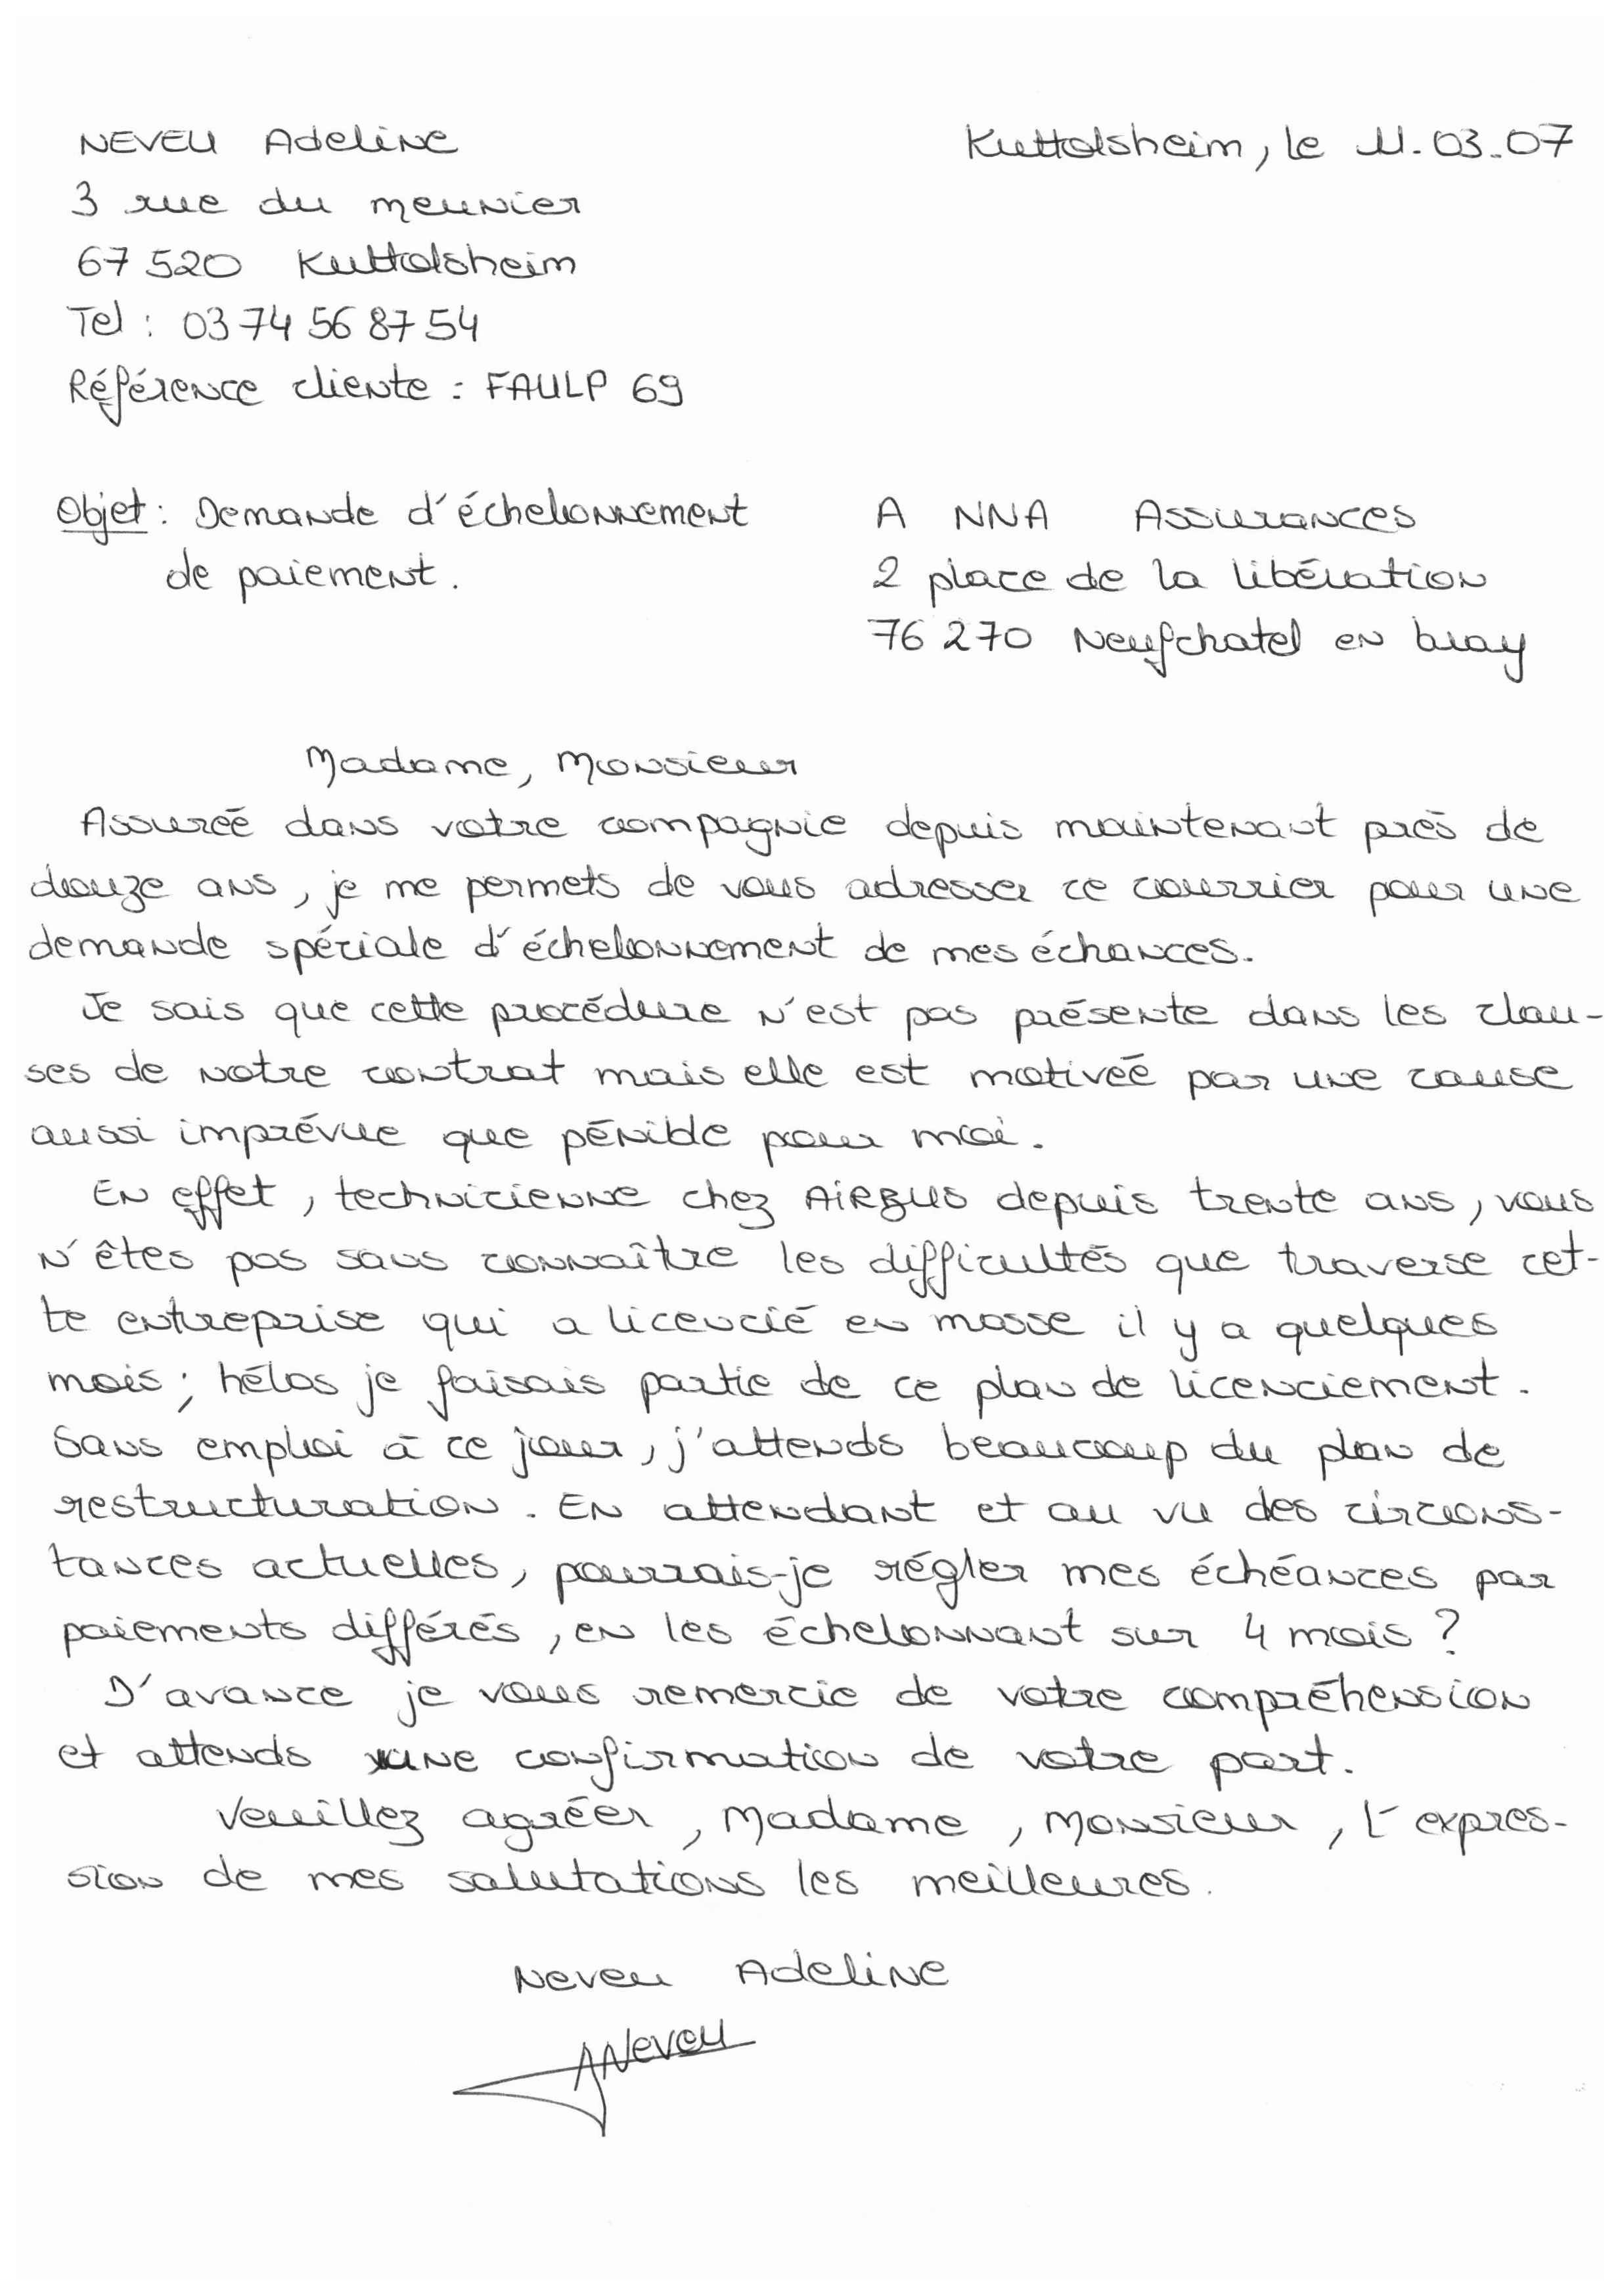 NEVEU Adeline
Kuttolsheim, le 11.03.07
3 rue du meunier
67 520 Kuttolsheim
Tel : 03 74 56 87 54
Référence cliente : FAULP 69
Objet : Demande d'échelonnement
de paiement.
A NNA Assurances
2 place de la libération
76 270 Neufchatel en bray
Madame, Monsieur
Assureé dans votre compagnie depuis maintenant près de
douze ans, je me permets de vous adresser ce courrier pour une
demande spéciale d'échelonnement de mes échances.
Je sais que cette procédure n'est pas présente dans les clau-
ses de notre contrat mais elle est motiveé par une cause
aussi imprévue que pénible pour moi.
En effet, technicienne chez AIRBUS depuis trente ans, vous
n'êtes pas sans connaître les difficultés que traverse cet-
te entreprise qui a licencié en masse il y a quelques
mois ; hélas je faisais partie de ce plan de licenciement.
Sans emploi à ce jour, j'attends beaucoup du plan de
restructuration. En attendant et au vu des circons-
tances actuelles, pourrais-je régler mes échéances par
paiements différés, en les échelonnant sur 4 mois ?
D'avance je vous remercie de votre compréhension
et attends une confirmation de votre part.
Veuillez agréer, Madame, Monsieur, l'expres-
sion de mes salutations les meilleures.
Neveu Adeline
ANeveu